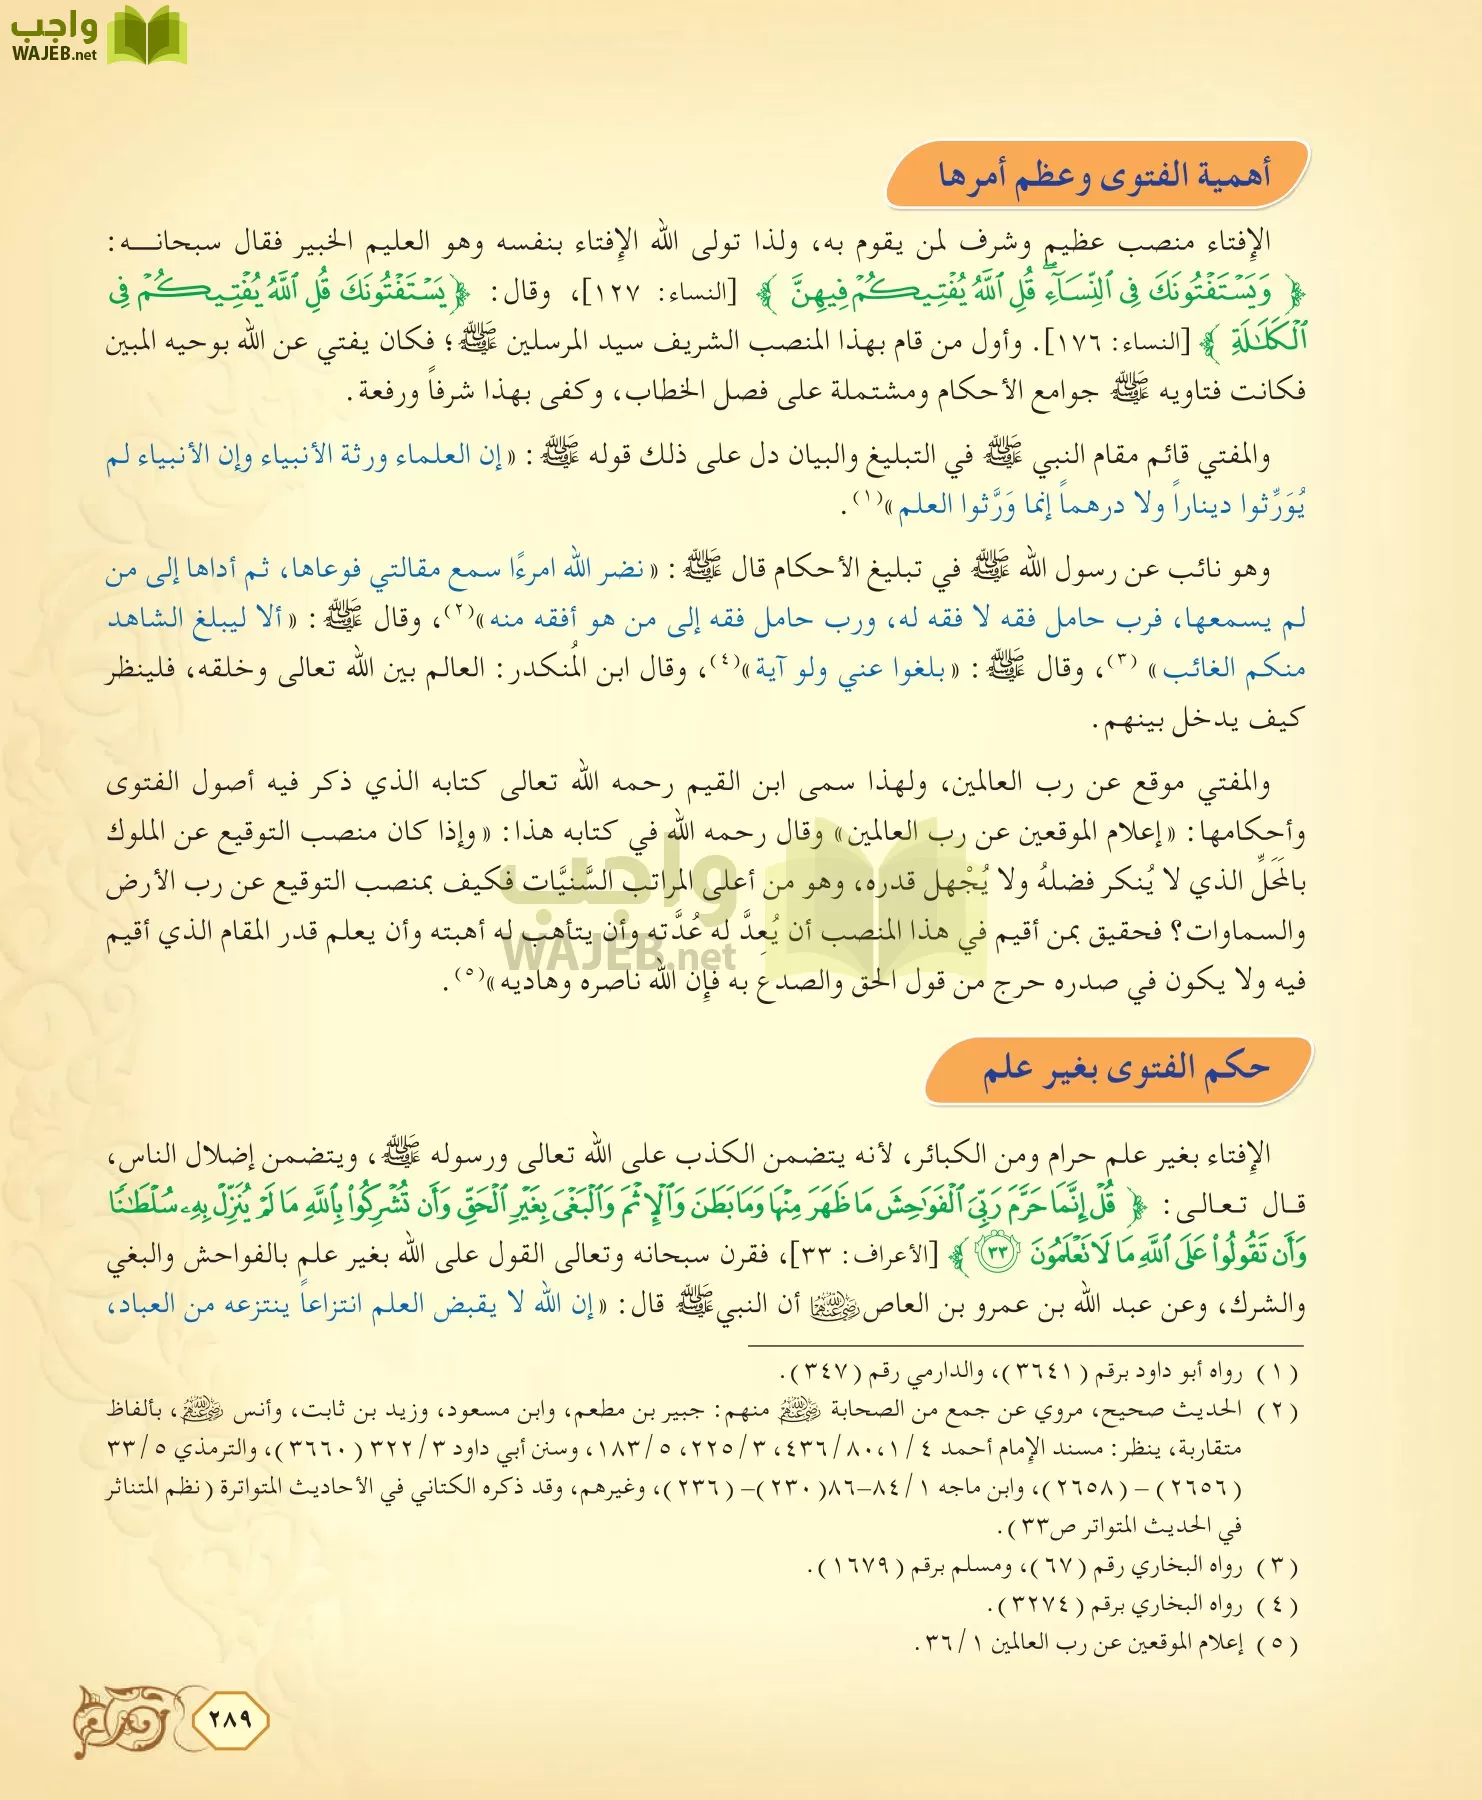 واجب
WAJEB.net
أهمية الفتوى وعظم أمرها
الإفتاء منصب عظيم وشرف لمن يقوم به، ولذا تولى الله الإفتاء بنفسه وهو العليم الخبير فقال سبحانـــه:
﴿ وَيَسْتَفْتُونَكَ فِي ٱلنِّسَآءِۖ قُلِ ٱللَّهُ يُفْتِيكُمْ فِيهِنَّ ﴾ [النساء: ١٢٧]، وقال: ﴿ يَسْتَفْتُونَكَ قُلِ ٱللَّهُ يُفْتِيكُمْ فِي
ٱلْكَلَٰلَةِ ﴾ [النساء: ١٧٦]. وأول من قام بهذا المنصب الشريف سيد المرسلين ﷺ؛ فكان يفتي عن الله بوحيه المبين
فكانت فتاويه ﷺ جوامع الأحكام ومشتملة على فصل الخطاب، وكفى بهذا شرفاً ورفعة.
والمفتي قائم مقام النبي ﷺ في التبليغ والبيان دل على ذلك قوله ﷺ: «إن العلماء ورثة الأنبياء وإن الأنبياء لم
يُوَرِّثوا ديناراً ولا درهماً إنما وَرَّثوا العلم»(١).
وهو نائب عن رسول الله ﷺ في تبليغ الأحكام قال ﷺ: «نضر الله امرءًا سمع مقالتي فوعاها، ثم أداها إلى من
لم يسمعها، فرب حامل فقه لا فقه له، ورب حامل فقه إلى من هو أفقه منه»(٢)، وقال ﷺ: «ألا ليبلغ الشاهد
منكم الغائب» (٣)، وقال ﷺ: «بلغوا عني ولو آية»(٤)، وقال ابن المُنكدر: العالم بين الله تعالى وخلقه، فلينظر
كيف يدخل بينهم.
والمفتي موقع عن رب العالمين، ولهذا سمى ابن القيم رحمه الله تعالى كتابه الذي ذكر فيه أصول الفتوى
وأحكامها: «إعلام الموقعين عن رب العالمين» وقال رحمه الله في كتابه هذا: «وإذا كان منصب التوقيع عن الملوك
بالمَحَلِّ الذي لا يُنكر فضلهُ ولا يُجْهل قدره، وهو من أعلى المراتب السَّنيَّات فكيف بمنصب التوقيع عن رب الأرض
والسماوات؟ فحقيق بمن أقيم في هذا المنصب أن يُعِدَّ له عُدَّته وأن يتأهب له أهبته وأن يعلم قدر المقام الذي أقيم
فيه ولا يكون في صدره حرج من قول الحق والصدع به فإن الله ناصره وهاديه»(٥).
واجب
WAJEB.net
حكم الفتوى بغير علم
الإفتاء بغير علم حرام ومن الكبائر، لأنه يتضمن الكذب على الله تعالى ورسوله ﷺ، ويتضمن إضلال الناس،
قـال تعـالـى: ﴿ قُلْ إِنَّمَا حَرَّمَ رَبِّيَ ٱلْفَوَٰحِشَ مَا ظَهَرَ مِنْهَا وَمَا بَطَنَ وَٱلْإِثْمَ وَٱلْبَغْيَ بِغَيْرِ ٱلْحَقِّ وَأَن تُشْرِكُوا۟ بِٱللَّهِ مَا لَمْ يُنَزِّلْ بِهِۦ سُلْطَٰنًا
وَأَن تَقُولُوا۟ عَلَى ٱللَّهِ مَا لَا تَعْلَمُونَ ٣٣ ﴾ [الأعراف: ٣٣]، فقرن سبحانه وتعالى القول على الله بغير علم بالفواحش والبغي
والشرك، وعن عبد الله بن عمرو بن العاص رضي الله عنهما أن النبي ﷺ قال: «إن الله لا يقبض العلم انتزاعاً ينتزعه من العباد،
(١) رواه أبو داود برقم (٣٦٤١)، والدارمي رقم (٣٤٧).
(٢) الحديث صحيح، مروي عن جمع من الصحابة رضي الله عنهم منهم: جبير بن مطعم، وابن مسعود، وزيد بن ثابت، وأنس رضي الله عنهم، بألفاظ
متقاربة، ينظر: مسند الإمام أحمد ٤/ ٨٠،١/ ٤٣٦، ٣/ ٢٢٥، ٥/ ١٨٣، وسنن أبي داود ٣/ ٣٢٢ (٣٦٦٠)، والترمذي ٥/ ٣٣
(٢٦٥٦) – (٢٦٥٨)، وابن ماجه ١/ ٨٤–٨٦(٢٣٠)– (٢٣٦)، وغيرهم، وقد ذكره الكتاني في الأحاديث المتواترة (نظم المتناثر
في الحديث المتواتر ص٣٣).
(٣) رواه البخاري رقم (٦٧)، ومسلم برقم (١٦٧٩).
(٤) رواه البخاري برقم (٣٢٧٤).
(٥) إعلام الموقعين عن رب العالمين ١/ ٣٦.
٢٨٩